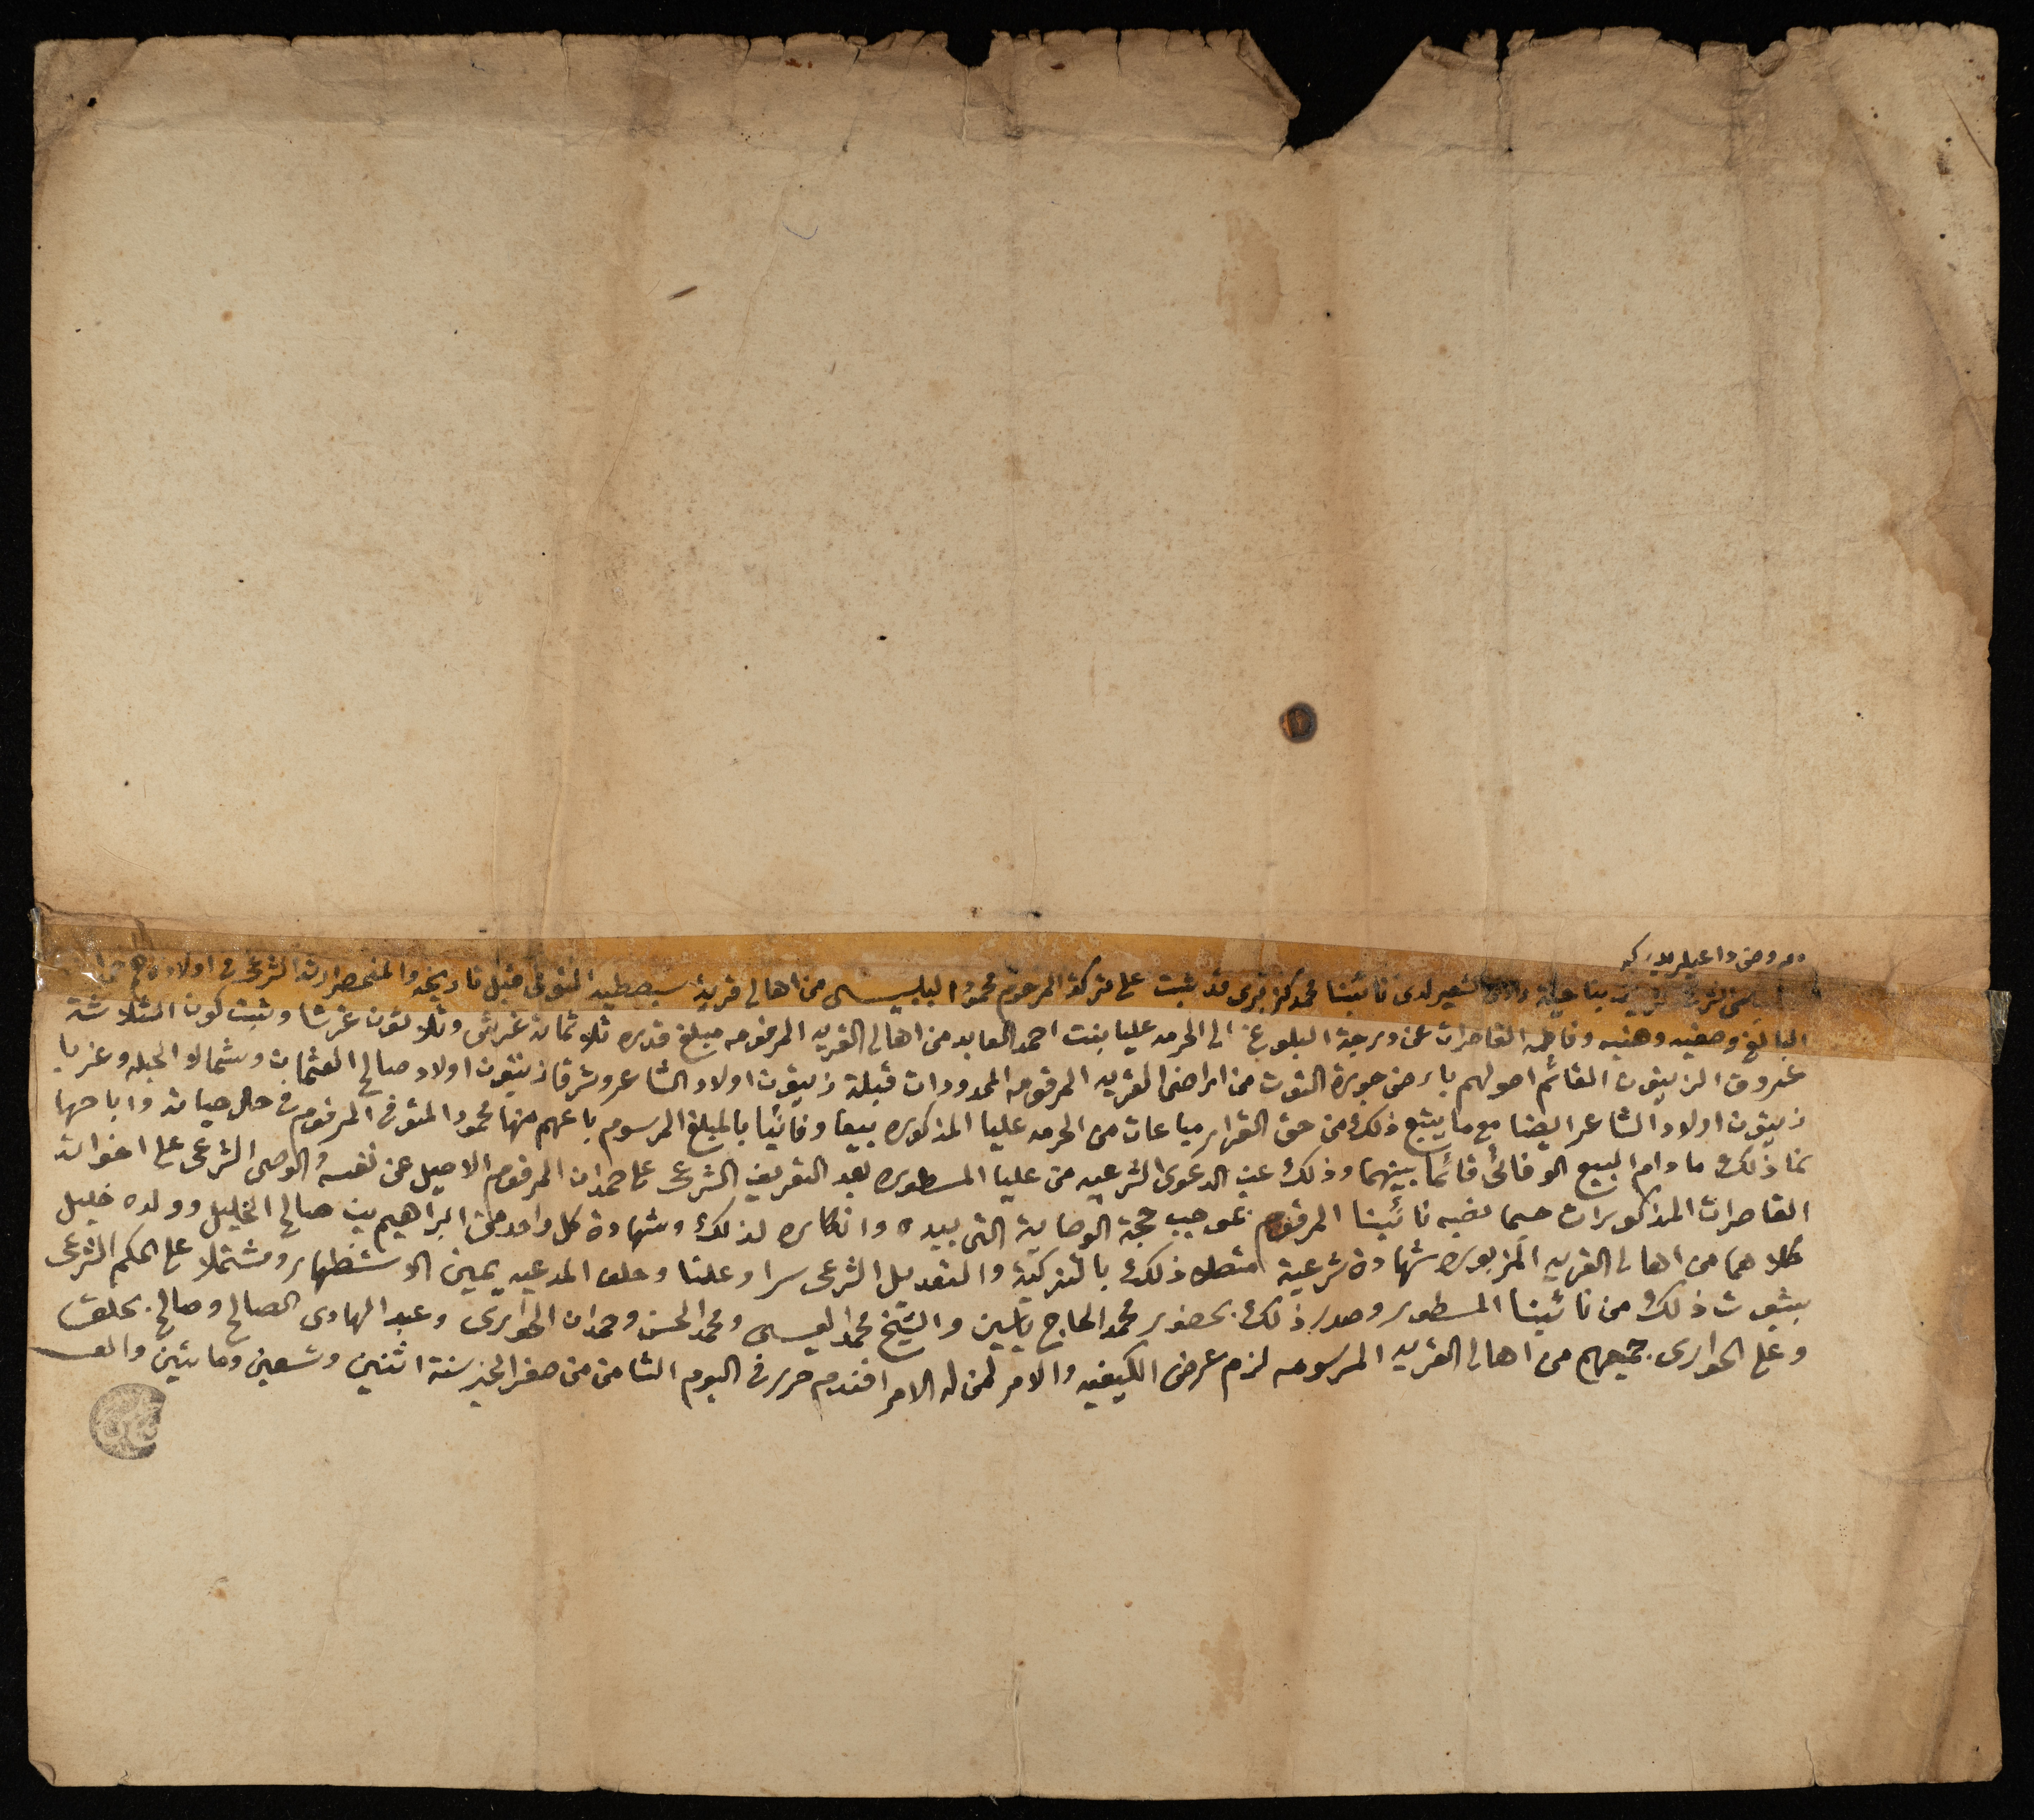 معروض داعيلريدر كه
بالمجلس الشرعي بناحية وادي الشعير لدى نائبنا محمد قد ثبت على تركة المرحوم محمود البليسي من اهالي قرية سبصطيه المتوفى قبل تاريخه والمنحصر ارثه الشرعي في اولاده حمدان
البالغ وصفيه وهنيه وفاطمه القاصرات عن درجة البلوغ الى الحرمه عليا بنت احمد العابد من اهالي القريه المرقومه مبلغ قدره ثلاثماية غرش وثلاثون غرشا وثبت كون الثلاثة
عروق الزيتون القائم اصولهم بارض جورة التوت من اراضي القريه المرقومه المحدودات قبلة زيتون اولاد الشاعر وشرقا زيتون اولاد صالح العثمان وشمالا الجبله وغربا
زيتون اولاد الشاعر ايضا مع ما يتبع ذلك من حق القرار مباعات من الحرمه عليا المذكوره بيعا وفائيا بالمبلغ المرسوم باعهم منها محمود المتوفى المرقوم في حال حياته واباحها
نما ذلك ما دام البيع الوفائي قائما بينهما وذلك غب الدعوى الشرعيه من عليا المسطوره بعد التعريف الشرعي على حمدان المرقوم الاصيل عن نفسه والوصي الشرعي على اخواته
القاصرات المذكورات حسبما نصبه نائبنا المرقوم بموجب حجة الوصاية التي بيده وانكاره لذلك وشهادة كل واحد من ابراهيم بن صالح الخليل وولده خليل
كلاهما من اهالي القريه المزبوره شهادة شرعية متصلا ذلك بالتزكية والتعديل الشرعي سرا وعلنا وحلف المدعيه يمين الاستظهار ومشتملا على الحكم الشرعي
بثبوت ذلك من نائبنا المسطور وصدر ذلك بحضور محمد الحاج ياسين والشيخ محمد العيسى ومحمد الحسن وحمدان الحواري وعبد الهادي الصالح وصالح
وعلي الحواري جميعهم من اهالي القريه المرسومه لزم عرض الكيفيه والامر لمن له الامر افندم حرر في اليوم الثامن من صفر الخير سنة اثنين وتسعين ومايتين والف